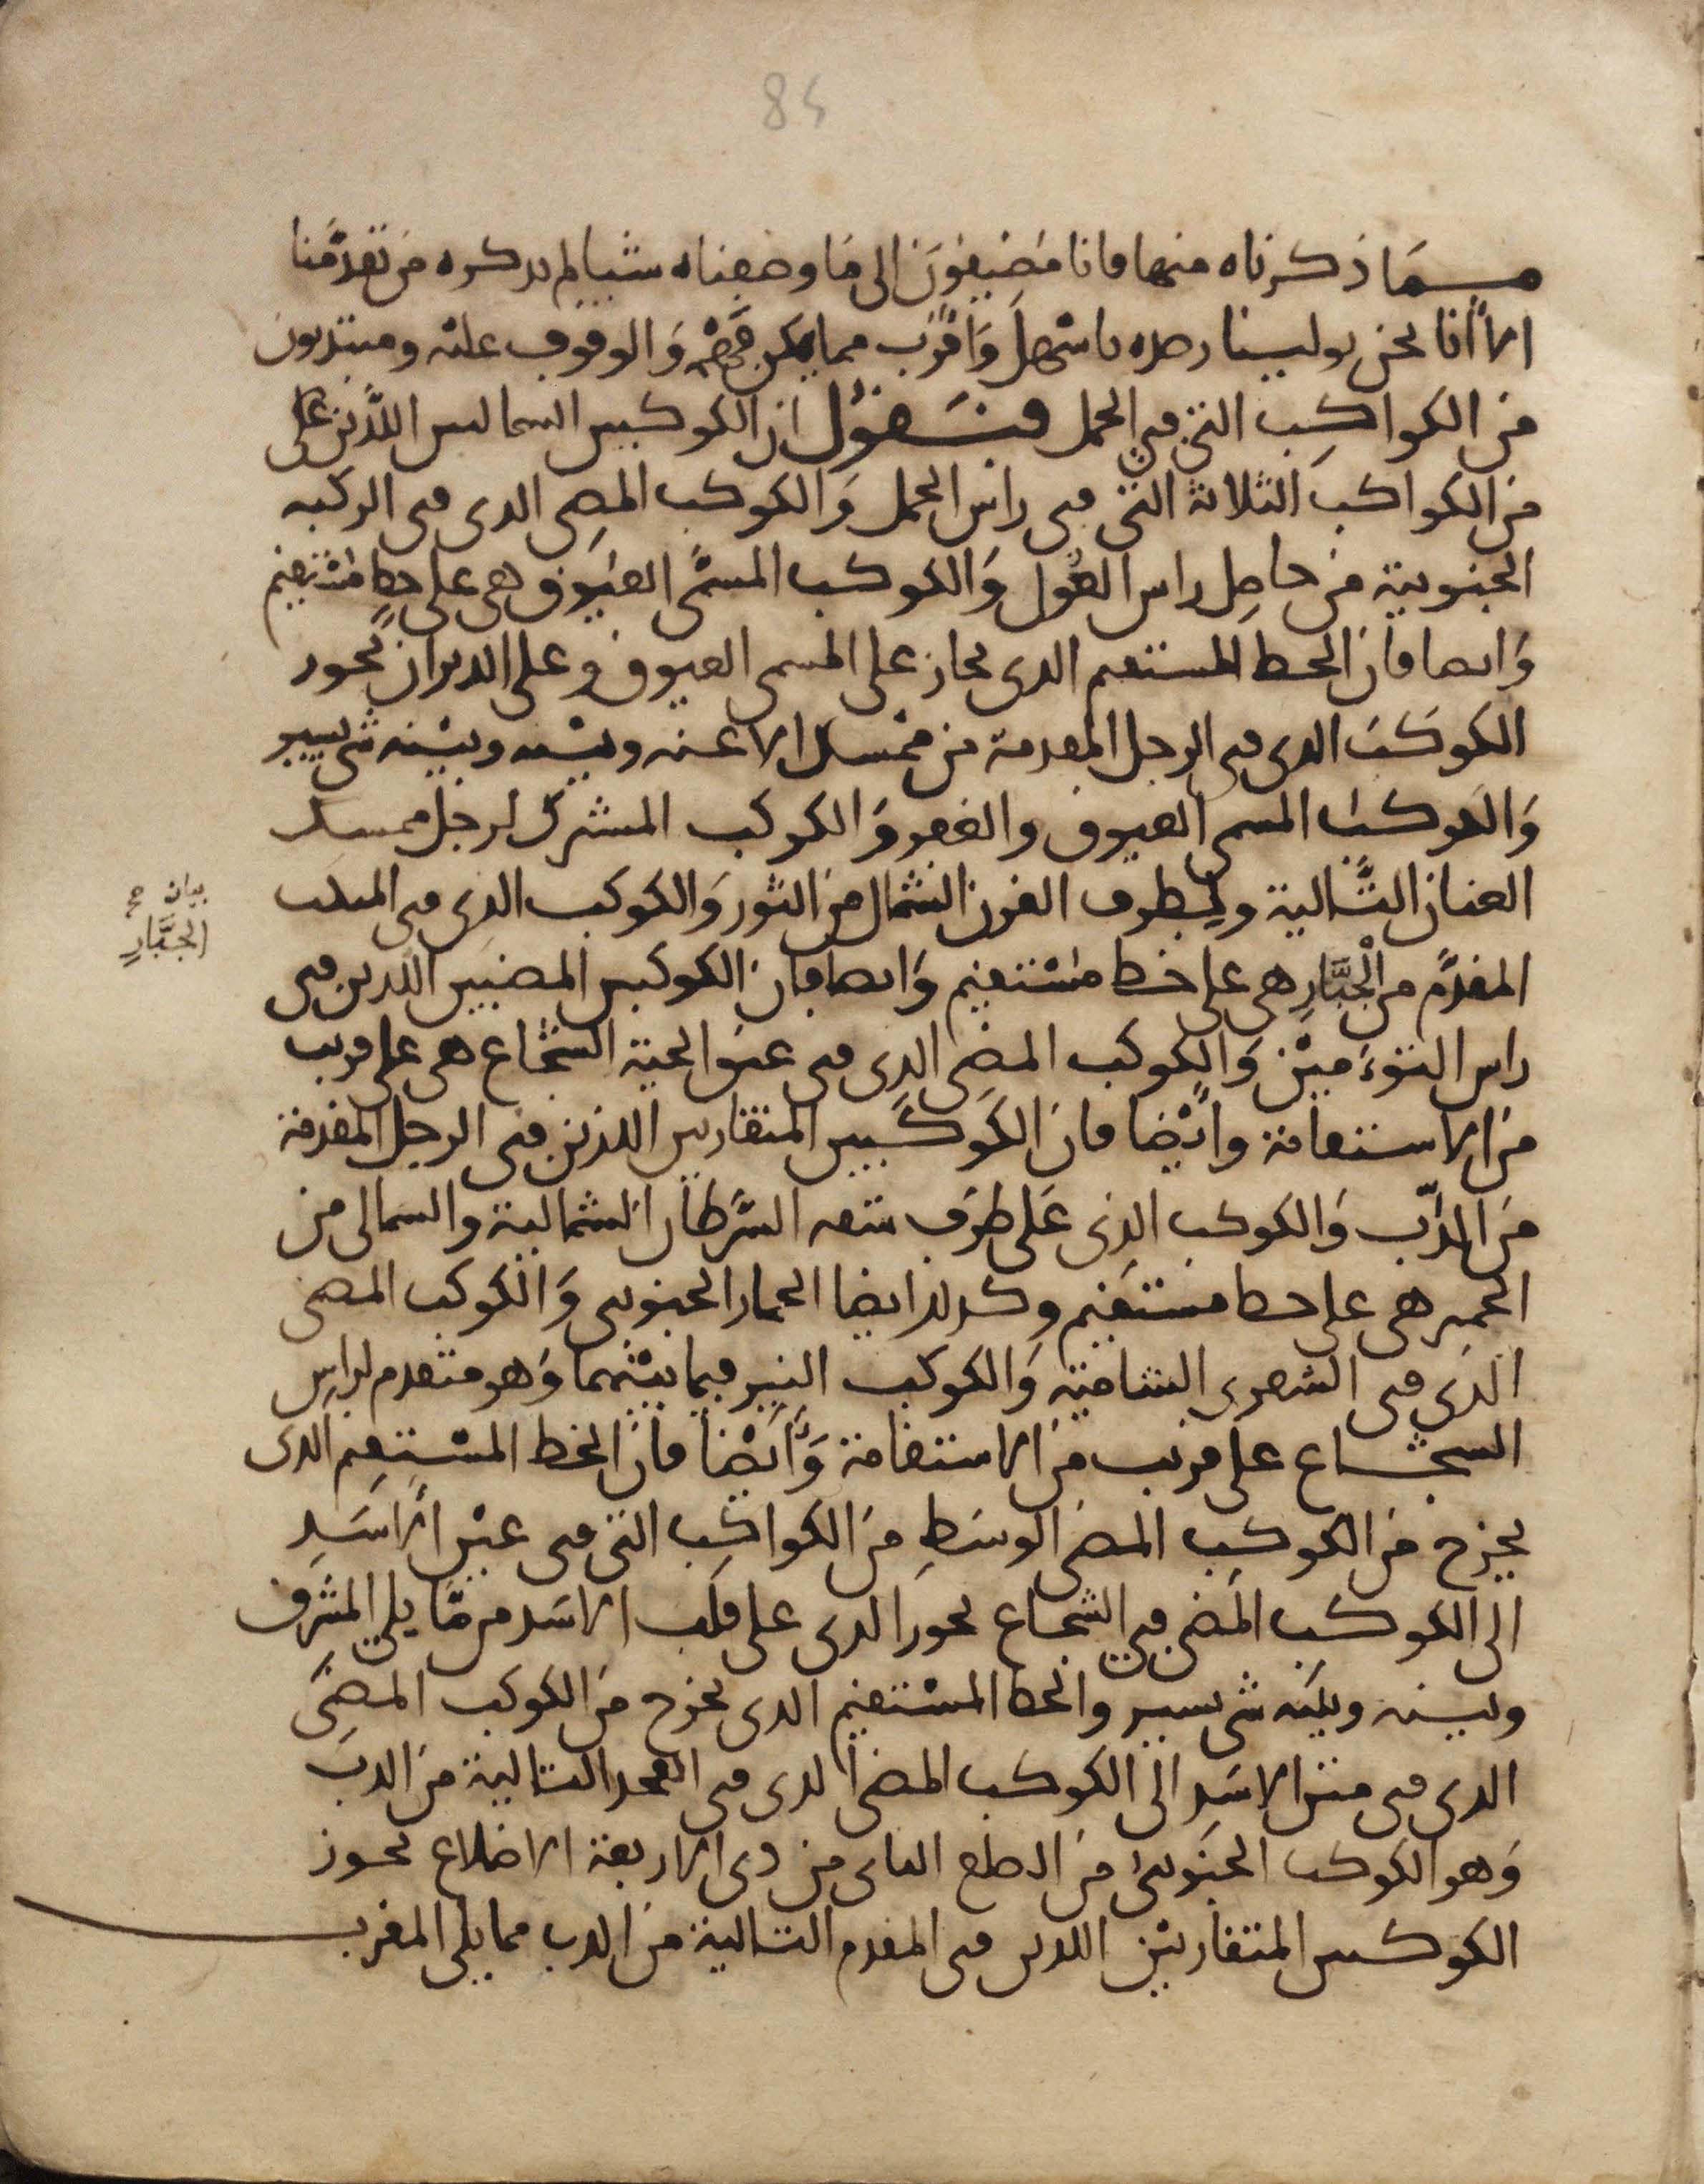 84
مما ذكرناه منها فانا مضيفون الى ما وصفناه شيا لم يذكره من تقدمنا
الا انا نحن تولينا رصده باسهل واقرب مما يمكن فحصه والوقوف عليه ومبتديون
من الكواكب التي في الحمل فنقول ان الكوكبين الشماليين اللذين على
من الكواكب الثلاثة التي في راس الحمل والكوكب المضي الذي في الركبة
الجنوبية من حامل راس الغول والكوكب المسمى العيوق هي على خط مستقيم
وايضا فان الخط المستقيم الذي يجاز على المسمى العيوق وعلى الدبران يجوز
الكوكب الذي في الرجل المقدمة من ممسك الاعنه وبينه وبينه شي يسير
والكوكب المسمى العيوق والكوكب المشترك لرجل ممسك
العنان التالية ولطرف القرن الشمالي من الثور والكوكب الذي في المنكب
المقدم من الجبار هي على خط مستقيم وايضا فان الكوكبين المضيين اللذين في
راس التوءمين والكوكب المضي الذي في عنق الحية الشجاع هي على قريب
من الاستقامة وايضا فان الكوكبين المتقاربين اللذين في الرجل المقدمة
من الدب والكوكب الذي على طرف السرطان الشمالية والشمالي من
الحمير هي على خط مستقيم وكذلك ايضا الحمار الجنوبي والكوكب المضي
الذي في الشعرى الشامية والكوكب النير فيما بينهما وهو متقدم لراس
الشجاع على قريب من الاستقامة وايضا فان الخط المستقيم الذي
يخرج من الكوكب المضي الوسط من الكواكب التي في عنق الاسد
الى الكوكب المضي في الشجاع يجوز الذي على قلب الاسد مما يلي المشرق
وبينه وبينه شي يسير والخط المستقيم الذي يخرج من الكوكب المضي
الذي في متن الاسد الى الكوكب المضي الذي في الفخذ التالية من الدب
وهو الكوكب الجنوبي من الضلع التالي من ذي الاربعة الاضلاع يجوز
الكوكبين المتقاربين اللذين في المقدم التالية من الدب مما يلي المغرب
بيان صح
الجبار